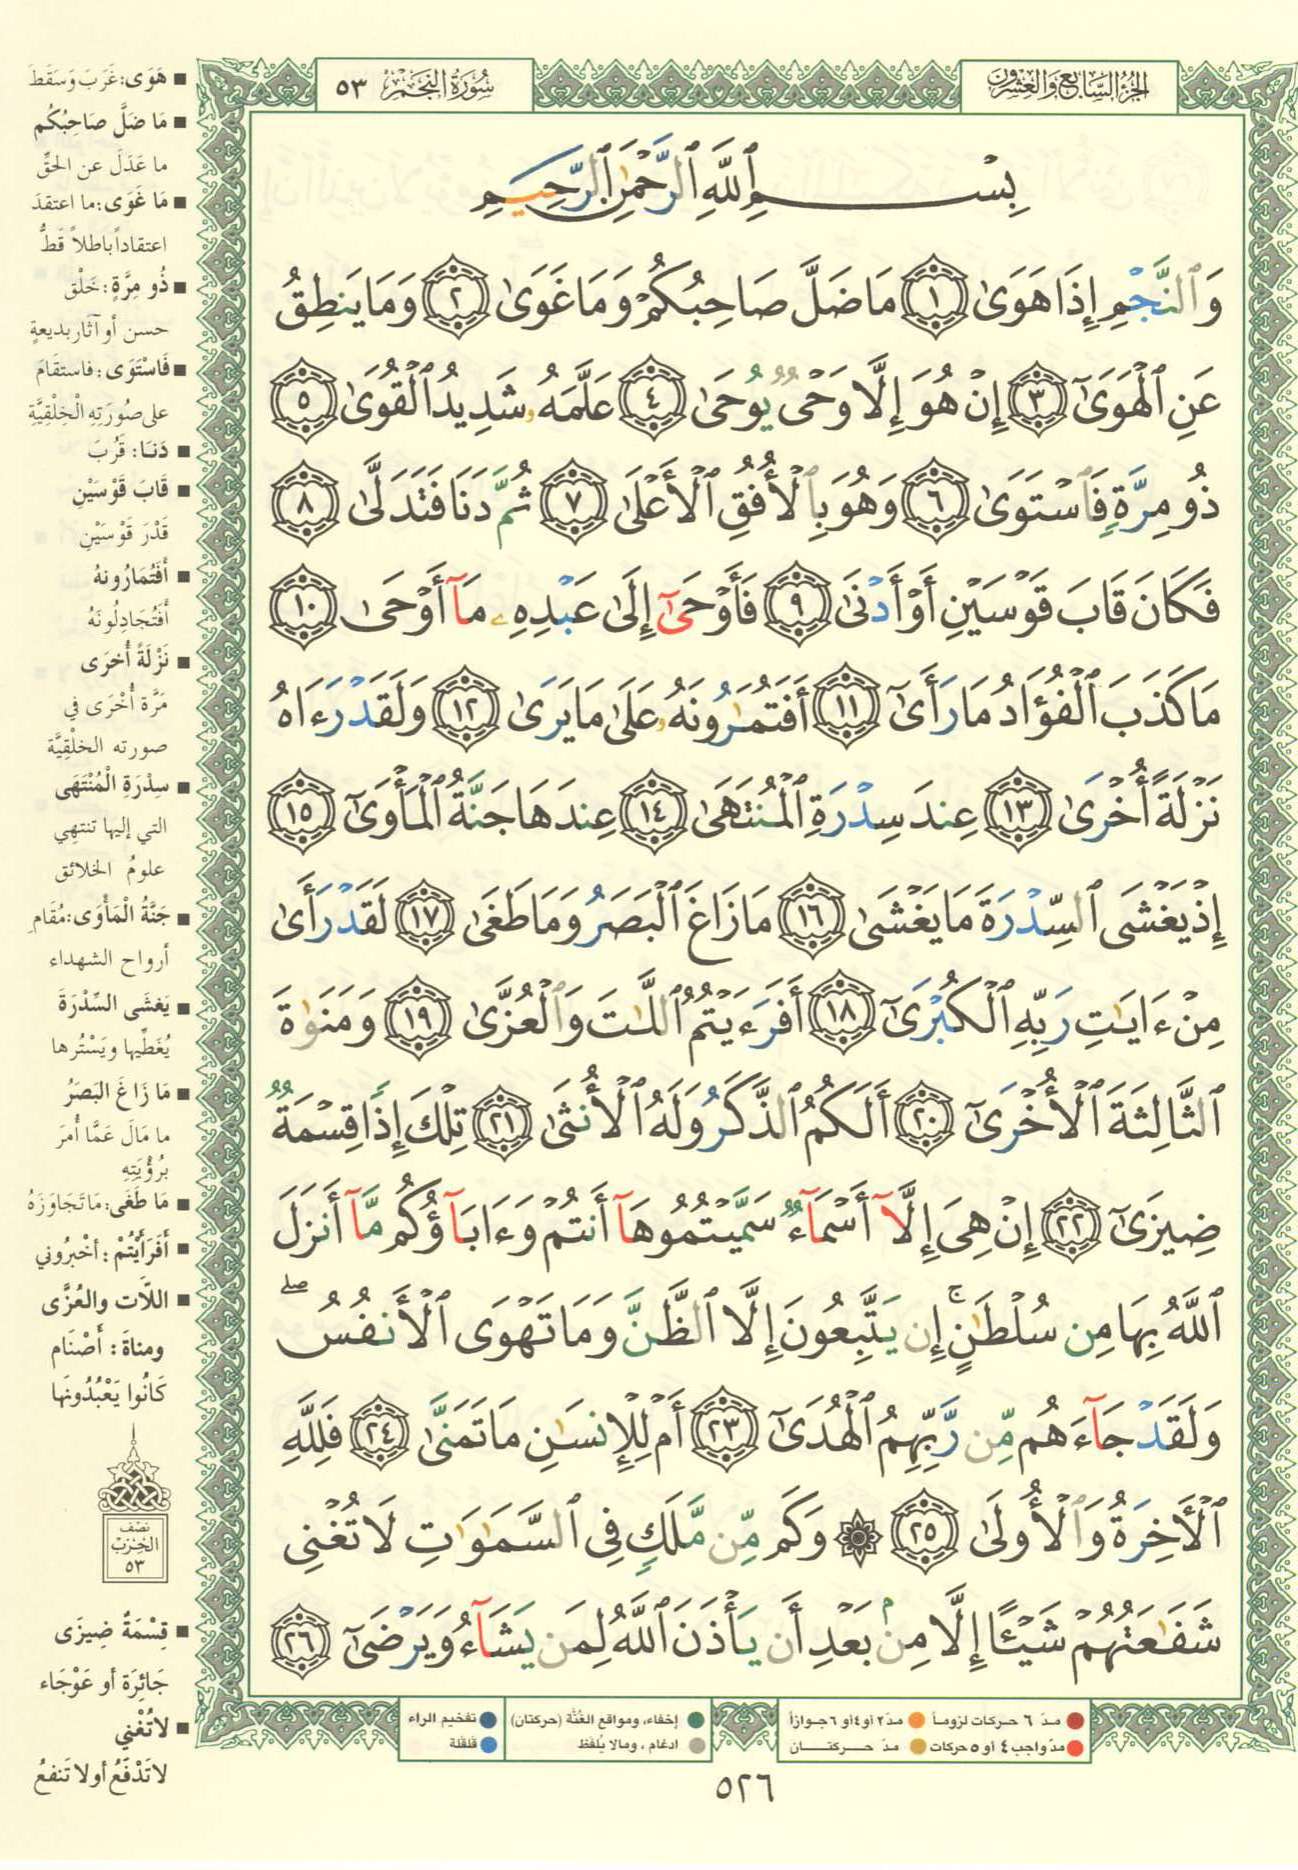 الجزء السابع والعشرون
سورة النجم ٥٣
بِسْمِ ٱللَّهِ ٱلرَّحْمَٰنِ ٱلرَّحِيمِ
وَٱلنَّجْمِ إِذَا هَوَىٰ ١ مَا ضَلَّ صَاحِبُكُمْ وَمَا غَوَىٰ ٢ وَمَا يَنطِقُ
عَنِ ٱلْهَوَىٰٓ ٣ إِنْ هُوَ إِلَّا وَحْىٌ يُوحَىٰ ٤ عَلَّمَهُۥ شَدِيدُ ٱلْقُوَىٰ ٥
ذُو مِرَّةٍ فَٱسْتَوَىٰ ٦ وَهُوَ بِٱلْأُفُقِ ٱلْأَعْلَىٰ ٧ ثُمَّ دَنَا فَتَدَلَّىٰ ٨
فَكَانَ قَابَ قَوْسَيْنِ أَوْ أَدْنَىٰ ٩ فَأَوْحَىٰٓ إِلَىٰ عَبْدِهِۦ مَآ أَوْحَىٰ ١٠
مَا كَذَبَ ٱلْفُؤَادُ مَا رَأَىٰٓ ١١ أَفَتُمَٰرُونَهُۥ عَلَىٰ مَا يَرَىٰ ١٢ وَلَقَدْ رَءَاهُ
نَزْلَةً أُخْرَىٰ ١٣ عِندَ سِدْرَةِ ٱلْمُنتَهَىٰ ١٤ عِندَهَا جَنَّةُ ٱلْمَأْوَىٰٓ ١٥
إِذْ يَغْشَى ٱلسِّدْرَةَ مَا يَغْشَىٰ ١٦ مَا زَاغَ ٱلْبَصَرُ وَمَا طَغَىٰ ١٧ لَقَدْ رَأَىٰ
مِنْ ءَايَٰتِ رَبِّهِ ٱلْكُبْرَىٰٓ ١٨ أَفَرَءَيْتُمُ ٱللَّٰتَ وَٱلْعُزَّىٰ ١٩ وَمَنَوٰةَ
ٱلثَّالِثَةَ ٱلْأُخْرَىٰٓ ٢٠ أَلَكُمُ ٱلذَّكَرُ وَلَهُ ٱلْأُنثَىٰ ٢١ تِلْكَ إِذًا قِسْمَةٌ
ضِيزَىٰٓ ٢٢ إِنْ هِىَ إِلَّآ أَسْمَآءٌ سَمَّيْتُمُوهَآ أَنتُمْ وَءَابَآؤُكُم مَّآ أَنزَلَ
ٱللَّهُ بِهَا مِن سُلْطَٰنٍ ۚ إِن يَتَّبِعُونَ إِلَّا ٱلظَّنَّ وَمَا تَهْوَى ٱلْأَنفُسُ ۖ
وَلَقَدْ جَآءَهُم مِّن رَّبِّهِمُ ٱلْهُدَىٰٓ ٢٣ أَمْ لِلْإِنسَٰنِ مَا تَمَنَّىٰ ٢٤ فَلِلَّهِ
ٱلْأَخِرَةُ وَٱلْأُولَىٰ ٢٥ ۞ وَكَم مِّن مَّلَكٍ فِى ٱلسَّمَٰوَٰتِ لَا تُغْنِى
شَفَٰعَتُهُمْ شَيْـًٔا إِلَّا مِنۢ بَعْدِ أَن يَأْذَنَ ٱللَّهُ لِمَن يَشَآءُ وَيَرْضَىٰٓ ٢٦
■ هَوَى: غَرَبَ وَسَقَطَ
■ مَا ضَلَّ صَاحِبُكُم
ما عَدَلَ عن الحقِّ
■ مَا غَوَى: ما اعتقدَ
اعتقاداً باطلاً قَطُّ
■ ذُو مِرَّةٍ: خَلْق
حسن أو آثار بديعةٍ
■ فَاسْتَوَى: فاستقَامَ
على صُورَتِهِ الْخِلْقِيَّةِ
■ دَنَا: قَرُبَ
■ قَابَ قَوْسَيْنِ
قَدْرَ قَوْسَيْنِ
■ أَفَتُمَارُونهُ
أَفَتُجادِلُونَهُ
■ نَزْلَةً أُخرَى
مَرَّة أُخْرَى في
صورته الخلْقِيَّة
■ سِدْرَةِ الْمُنْتَهَى
التي إليها تنتهِي
علومُ الخلائق
■ جَنَّةُ الْمَأْوَى: مُقَام
أرواح الشهداء
■ يَغشَى السِّدْرَةَ
يُغَطِّيها ويَسْتُرها
■ مَا زَاغَ البَصَرُ
ما مَالَ عَمَّا أُمرَ
برُؤْيَتِهِ
■ مَا طَغَى: مَا تَجَاوَزَهُ
■ أَفَرَأَيْتُمْ: أخْبرُوني
■ اللاَّت والعُزَّى
ومناةَ: أَصْنَام
كَانُوا يَعْبُدُونَها
نصف
الحزب
٥٣
■ قِسْمَةٌ ضِيزَى
جَائِرَة أو عَوْجَاء
■ لاتُغْنِي
لاتَدْفَعُ أولا تَنفعُ
مدّ ٦ حركات لزوماً
مدّ ٢ أو ٤ أو ٦ جوازاً
مدّ واجب ٤ أو ٥ حركات
مدّ حركتان
إخفاء، ومواقع الغُنَّة (حركتان)
ادغام، ومالا يُلفَظ
تفخيم الراء
قلقلة
٥٢٦